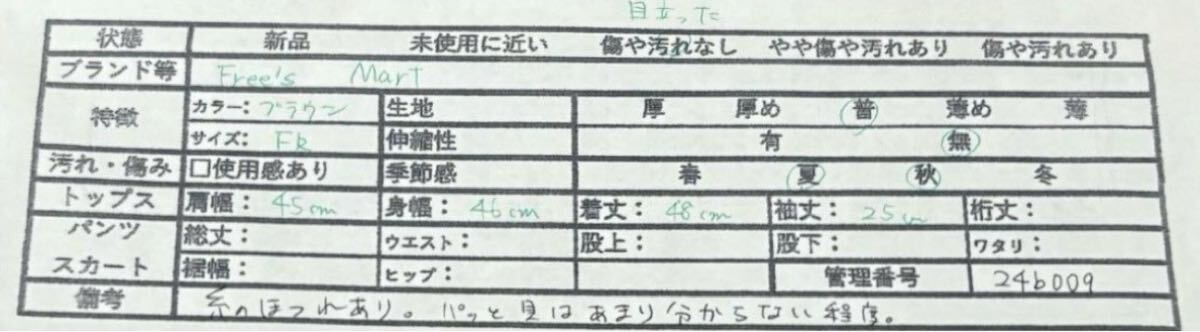 目立った
状態 新品 未使用に近い 傷や汚れなし やや傷や汚れあり 傷や汚れあり
ブランド等 Free's Mart
特徴 カラー：ブラウン 生地 厚 厚め 普 薄め 薄
サイズ：FR 伸縮性 有 無
汚れ・傷み □使用感あり 季節感 春 夏 秋 冬
トップス 肩幅：45cm 身幅：46cm 着丈：48cm 袖丈：25cm 裄丈：
パンツ スカート 総丈： ウエスト： 股上： 股下： ワタリ：
裾幅： ヒップ： 管理番号 24b009
備考 糸のほつれあり。パッと見はあまり分からない程度。